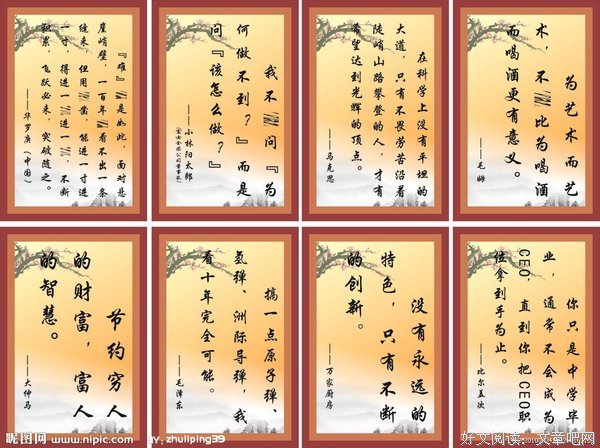 『难』是如此，面对悬
崖峭壁，一百年看不出一条
缝来，但用凿，能进一寸进
一寸，得进一进一，不断
积累，飞跃必来，突破随之。
——华罗庚（中国）
我不问『为
何做不到？』而是
问『该怎么做？』
——小林阳太郎
在科学上没有平坦的
大道，只有不畏劳苦沿着
陡峭山路攀登的人，才有
希望达到光辉的顶点。
——马克思
为艺术而艺
术，不比为喝酒
而喝酒更有意义。
——毛姆
节约穷人
的财富，富人
的智慧。
——大仲马
搞一点原子弹、
氢弹、洲际导弹，我
看十年完全可能。
——毛泽东
没有永远的
特色，只有不断
的创新。
——万家厨房
你只是中学毕
业，通常不会成为
CEO，直到你把CEO职
位拿到手为止。
——比尔盖次
昵图网 www.nipic.com
zhuliping39
好文阅读：文章吧网